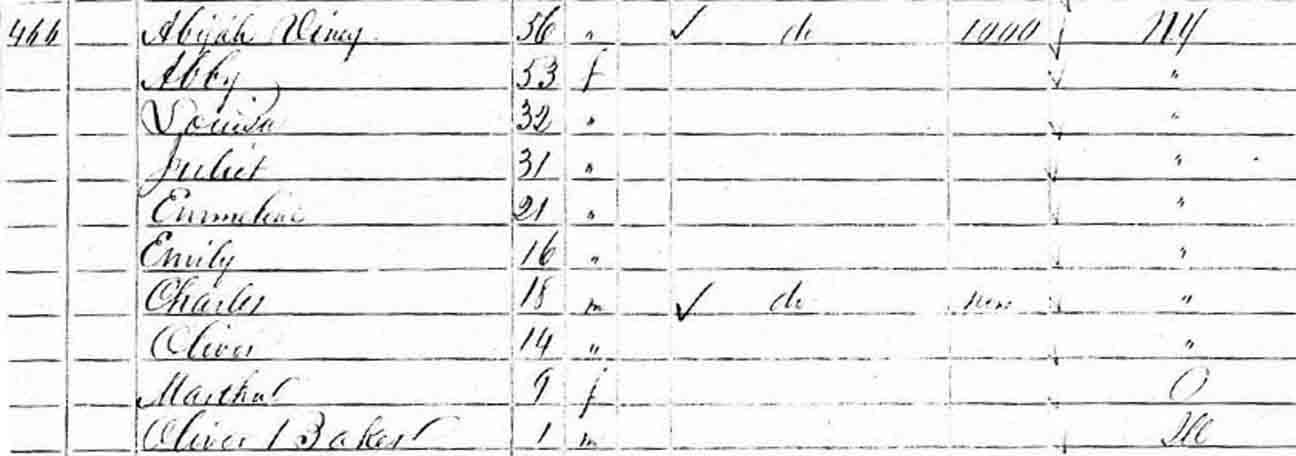 466 Abijah Viney 56 " ✓ do 1000 NY
Abby 53 f "
Louisa 32 " "
Juliet 31 " "
Emmeline 21 " "
Emily 16 " "
Charles 18 m ✓ do "
Oliver 14 " "
Martha 9 f O
Oliver Baker 1 m Ill